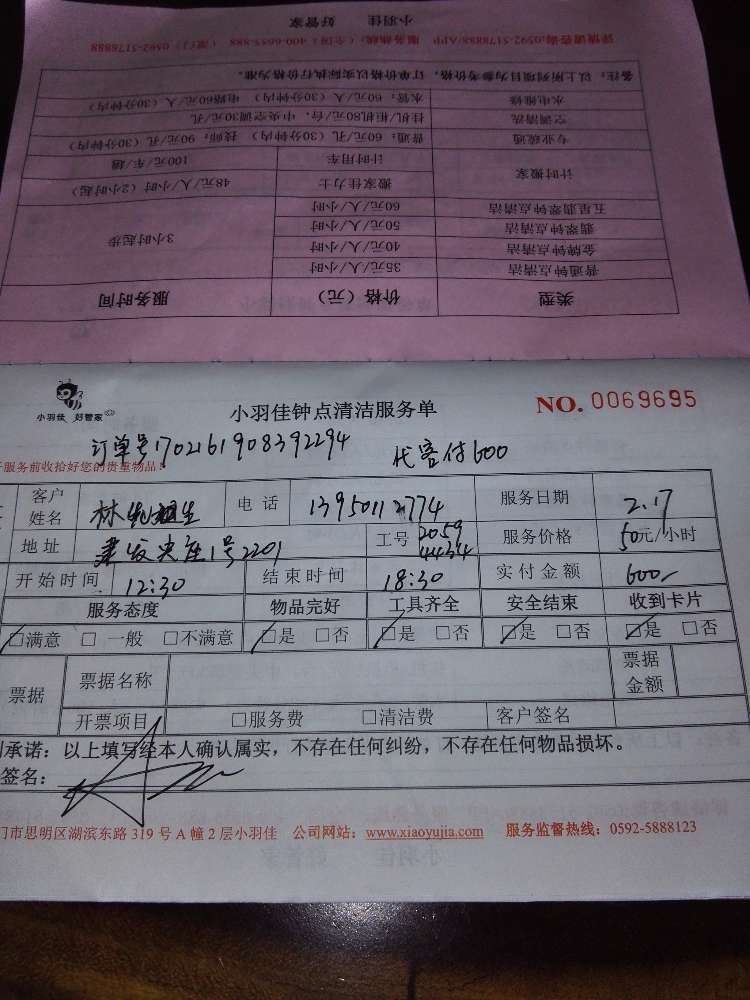 小羽佳 好管家
详情请咨询:0592-5178888/APP 服务热线:(全国)400-6655-888 (厦门)0592-5178888
备注:以上所列项目为参考价格,订单价格以实际执行价格为准。
水电维修 水管:60元/人(30分钟内) 电路60元/人(30分钟内)
空调清洗 挂机/柜机80元/台,中央空调30元/孔
专业疏通 普通:60元/孔(30分钟内) 技师:90元/孔(30分钟内)
计时搬家 计时用车 100元/车/趟
搬家佳力士 48元/人/小时(2小时起)
五星翡翠钟点清洁 60元/人/小时
翡翠钟点清洁 50元/人/小时 3小时起步
金牌钟点清洁 40元/人/小时
普通钟点清洁 35元/人/小时
类型 价格(元) 服务时间
小羽佳 好管家
小羽佳钟点清洁服务单
NO. 0069695
订单号1702161908392294 代客付600
服务前收拾好您的贵重物品!
客户姓名 林先生 电话 13950112774 服务日期 2.17
地址 建发央座1号2201 工号 2059 4434 服务价格 50元/小时
开始时间 12:30 结束时间 18:30 实付金额 600
服务态度 物品完好 工具齐全 安全结束 收到卡片
☑满意 □一般 □不满意 ☑是 □否 ☑是 □否 ☑是 □否 ☑是 □否
票据 票据名称 票据金额
开票项目 □服务费 □清洁费 客户签名
承诺:以上填写经本人确认属实,不存在任何纠纷,不存在任何物品损坏。
签名:
门市思明区湖滨东路 319 号 A 幢 2 层小羽佳 公司网站:www.xiaoyujia.com 服务监督热线:0592-5888123